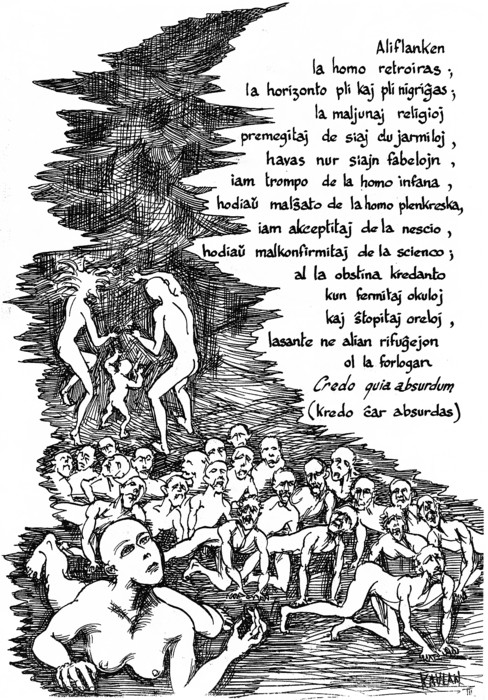 Aliflanken
la homo retroiras ;
la horizonto pli kaj pli nigriĝas ;
la maljunaj religioj
premegitaj de siaj du jarmiloj ,
havas nur siajn fabelojn ,
iam trompo de la homo infana ,
hodiaŭ malŝato de la homo plenkreska,
iam akceptitaj de la nescio ,
hodiaŭ malkonfirmitaj de la scienco ;
al la obstina kredanto
kun fermitaj okuloj
kaj ŝtopitaj oreloj ,
lasante ne alian rifuĝejon
ol la forlogan
Credo quia absurdum
(kredo ĉar absurdas)
KAVLAN